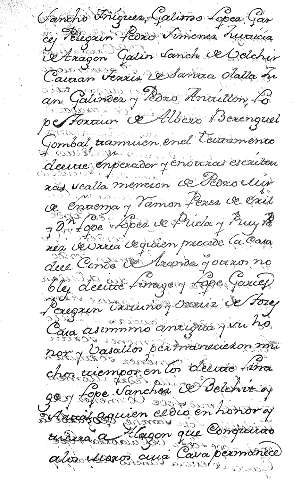 Sancho Iñiguez, Galindo Lopez, Gar
Pelegrin Pedro Ximenez Justicia
de Aragon Galin Sanch de Belchit
Caixan Ferriz de Santa olalla Ju
an Galindez y Pedro Antillon, Lo
pe Fortun de Albero Berenguel
Gombal tambien en el testamento
de este enperador y en otras escritu
ras se alla mencion de Pedro Mir
de entenza y Ramon Perez de eril
y Dn Lope Lopez de Puela y Ruy Pe
rez de Urrea de quien procede la Casa
del Conde de Aranda y otros no
bles de este Linage y Lope Garces
Peregrin
Casa asimismo antigua y su ho
nor y Vasallos permanecieron mu
chos tiempos en los de este Lina
ge y Lope Sanchez de Belchit y
a quien cedio en honor y
a Alagon que Conquisto
a los Moros cuia Casa permanece